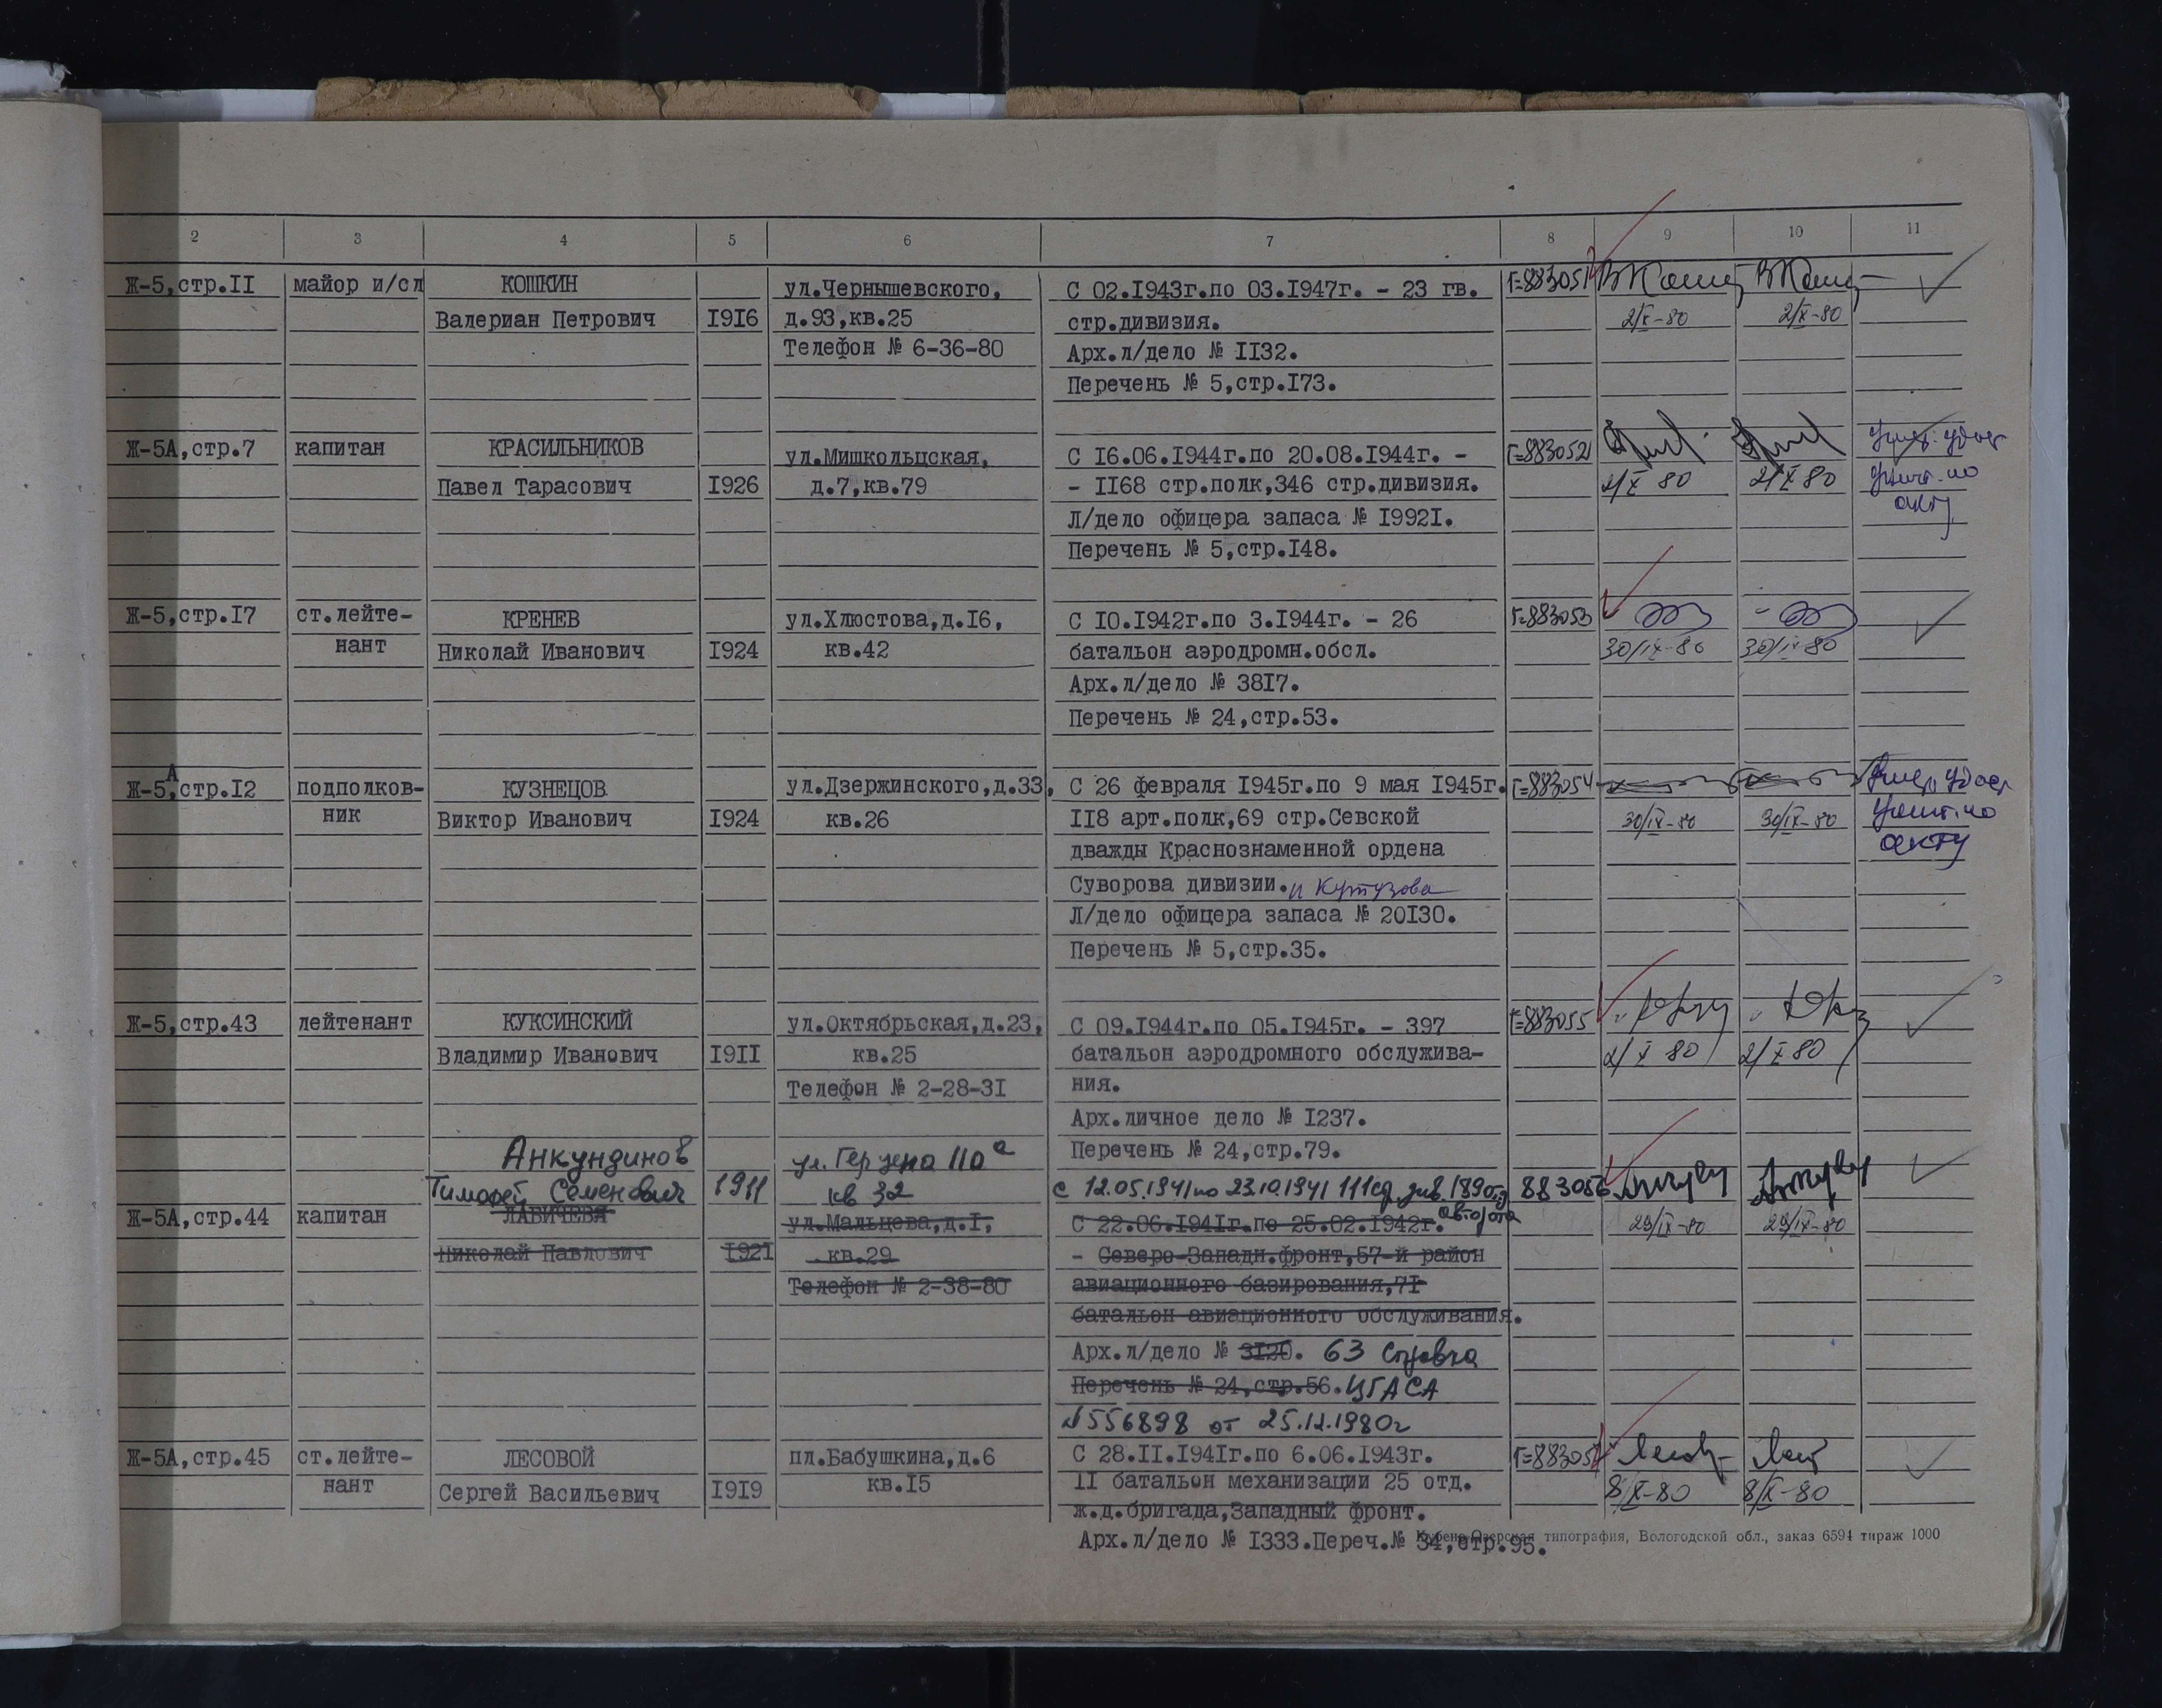 2 3 4 5 6 7 8 9 10 11
Ж-5,стр.II майор и/сл КОШКИН ул.Чернышевского, С 02.I943г.по 03.I947г. - 23 гв. Г=883051 2/X-80 2/X-80
Валериан Петрович I9I6 д.93,кв.25 стр.дивизия.
Телефон № 6-36-80 Арх.л/дело № II32.
Перечень № 5,стр.I73.
Ж-5А,стр.7 капитан КРАСИЛЬНИКОВ ул.Мишкольцская, С I6.06.I944г.по 20.08.I944г. - Г=883052
Павел Тарасович I926 д.7,кв.79 - II68 стр.полк,346 стр.дивизия. 2/X 80 2/X 80 по
Л/дело офицера запаса № I992I. акту
Перечень № 5,стр.I48.
Ж-5,стр.I7 ст.лейте- КРЕНЕВ ул.Хлюстова,д.I6, С I0.I942г.по 3.I944г. - 26 Г=883053
нант Николай Иванович I924 кв.42 батальон аэродромн.обсл. 30/IX-80 30/IX-80
Арх.л/дело № 38I7.
Перечень № 24,стр.53.
А
Ж-5,стр.I2 подполков- КУЗНЕЦОВ ул.Дзержинского,д.33, С 26 февраля I945г.по 9 мая I945г. Г=883054
ник Виктор Иванович I924 кв.26 II8 арт.полк,69 стр.Севской 30/IX-80 30/IX-80 по
дважды Краснознаменной ордена акту
Суворова дивизии. и Кутузова
Л/дело офицера запаса № 20I30.
Перечень № 5,стр.35.
Ж-5,стр.43 лейтенант КУКСИНСКИЙ ул.Октябрьская,д.23, С 09.I944г.по 05.I945г. - 397 Г=883055
Владимир Иванович I9II кв.25 батальон аэродромного обслужива- 2/X 80 2/X 80
Телефон № 2-28-3I ния.
Арх.личное дело № I237.
Анкундинов ул.Герцена 110а Перечень № 24,стр.79.
Тимофей Семенович 1911 кв 32 с 12.05.1941 по 23.10.1941 111 сд див. 883056
Ж-5А,стр.44 капитан ЛАВИЧЕВЯ ул.Мальцева,д.I, С 22.06.I94Iг.по 25.02.I942г. 29/IX-80 29/IX-80
Николай Павлович I92I кв.29 - Северо-Западн.фронт,57-й район
Телефон № 2-38-80 авиационного базирования,7I
батальон авиационного обслуживания.
Арх.л/дело № 3I20. 63 справка
Перечень № 24,стр.56. ЦГАСА
№556898 от 25.12.1980г
Ж-5А,стр.45 ст.лейте- ЛЕСОВОЙ пл.Бабушкина,д.6 С 28.II.I94Iг.по 6.06.I943г. Г=883057
нант Сергей Васильевич I9I9 кв.I5 II батальон механизации 25 отд. 8/X-80 8/X-80
ж.д.бригада,Западный фронт.
Арх.л/дело № I333.Переч.№ 34,стр.95.
Кубено-Озерская типография, Вологодской обл., заказ 6594 тираж 1000